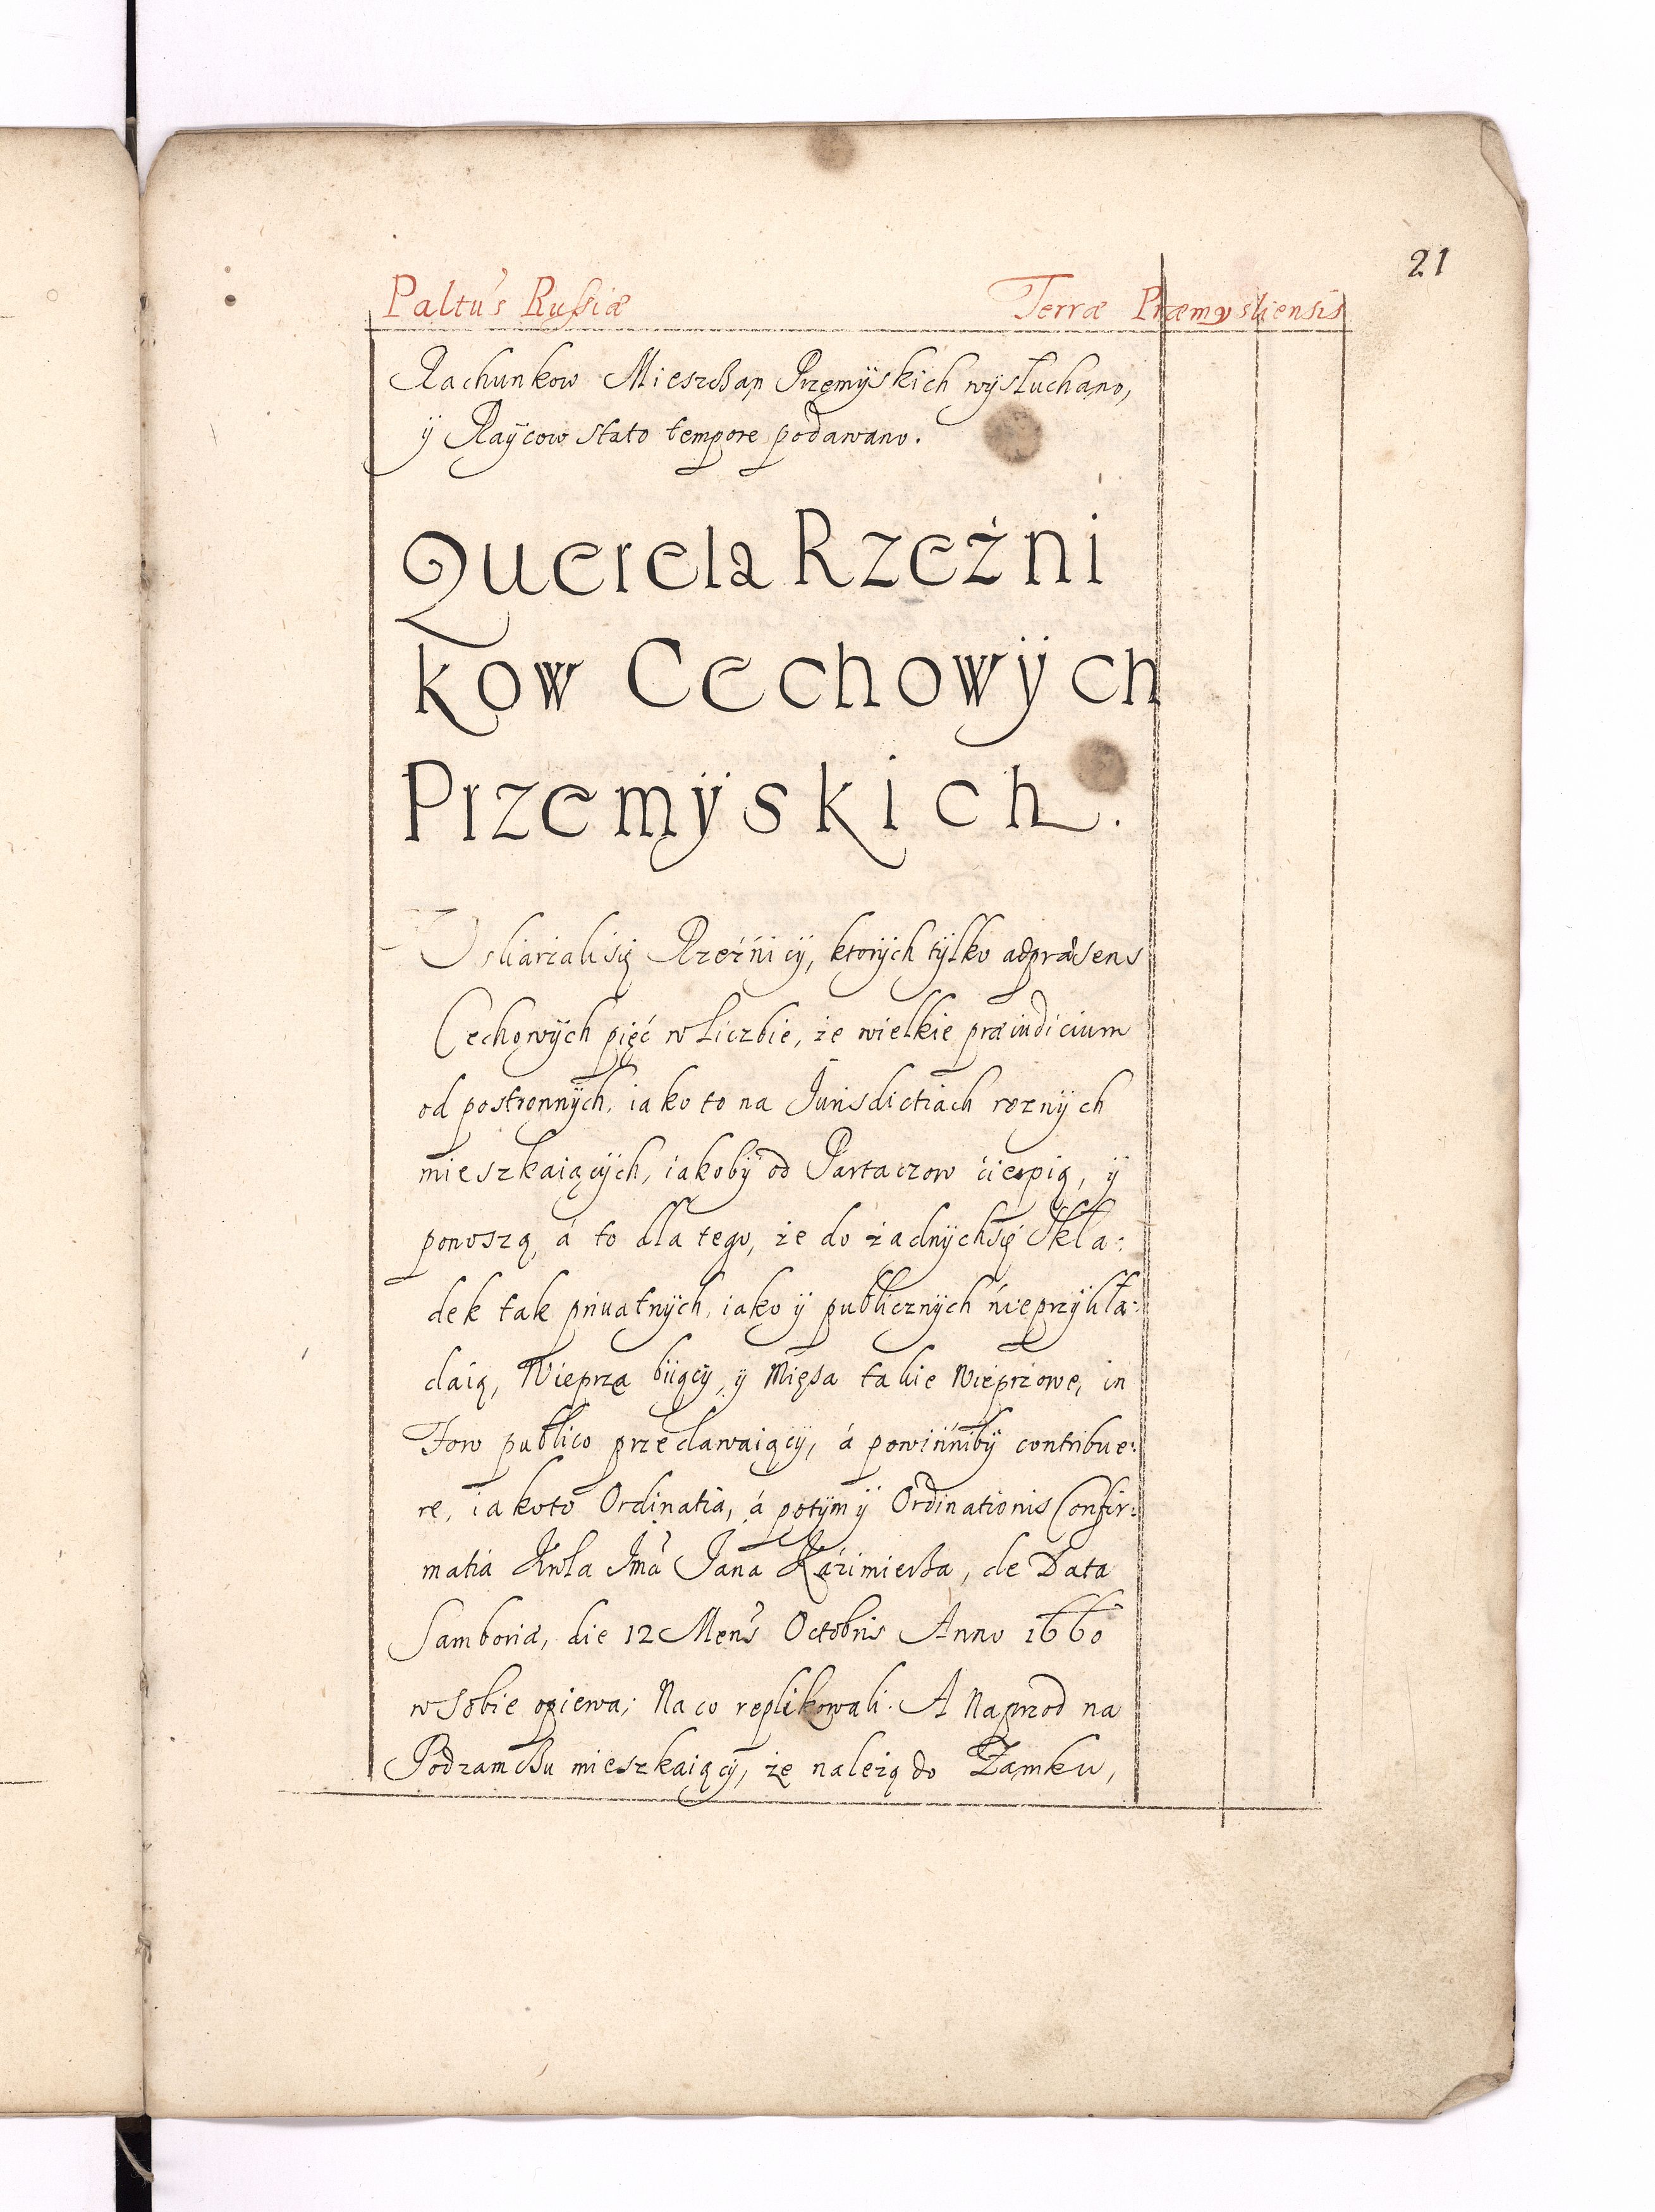 21
Paltu's Russiæ Terræ Præmysliensis
Rachunkow Mieszczan Przemÿskich wÿsłuchano,
ÿ Raÿcow stato tempore podawano.
Querela Rzeźni
kow Cechowÿch
Przemÿskich.
Uskarżali się Rzeźnicÿ, ktorÿch tÿlko ad præsens
Cechowÿch pięć w liczbie, że wielkie præiudicium
od postronnÿch, iako to na Jurisdictiach roznÿch
mieszkaiącÿch, iakobÿ od Partaczow cierpią, ÿ
ponoszą, á to dla tego, że do żadnÿch się Skła:
dek tak priuatnÿch, iako ÿ publicznÿch nieprzÿkła:
daią, Wieprze biiącÿ, ÿ Mięsa takie Wieprzowe, in
Foro publico przedawaiącÿ, á powinnibÿ contribue:
re, iako to Ordinatia, á potÿm ÿ Ordinationis Confir:
matia Krola Jmci Jana Kaźimierza, de Data
Samboriæ, die 12 Mens' Octobris Anno 1660
w sobie opiewa; Na co replikowali. A Naprzod na
Podzamczu mieszkaiącÿ, że należą do Zamku,